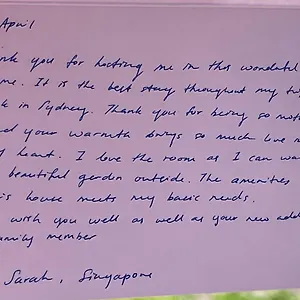 April
nk you for hosting me in this wonderful
me. It is the best stay throughout my
k in Sydney. Thank you for being so
d your warmth brings so much love
heart. I love the room as I can
beautiful garden outside. The amenities
is house meets my basic needs.
wish you well as well as your new
amily member
Sarah, Singapore